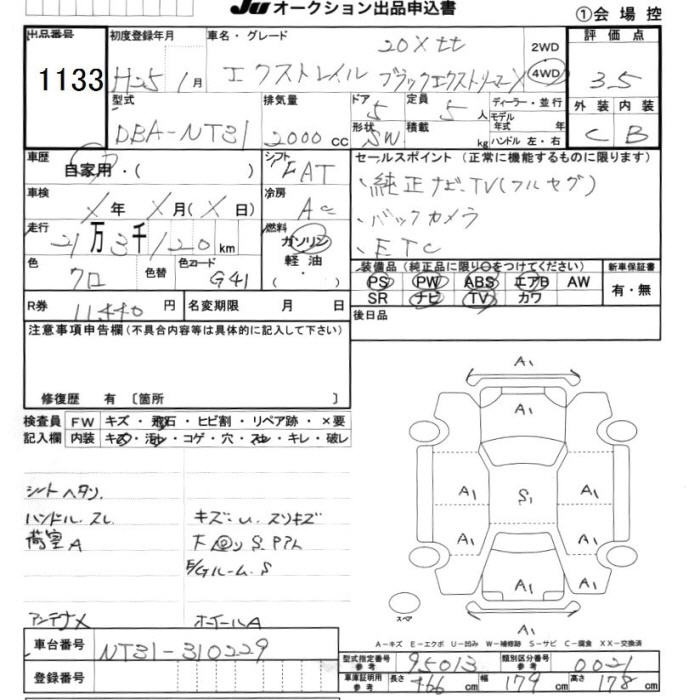 JU オークション出品申込書
①会場控
出品番号 初度登録年月 車名・グレード 20Xtt 2WD 評価点
1133 H25 1月 エクストレイル ブラックエクストリーマーX 4WD 3.5
型式 排気量 ドア 5 定員 5人 ディーラー・並行 外装 内装
DBA-NT31 2000cc 形状 SW 積載 kg モデル年式 年 ハンドル 左・右 C B
車歴 シフト セールスポイント (正常に機能するものに限ります)
自家用・( ) FAT ・純正ナビ・TV(フルセグ)
車検 冷房 ・バックカメラ
X年 X月(X日) AC ・ETC
走行 燃料
21万3千120km ガソリン 軽油・( )
装備品 (純正品に限り○をつけてください) 新車保証書
色 色替 色コード PS PW ABS エアB AW 有・無
クロ G41 SR ナビ TV カワ
R券 11440円 名変期限 月 日 後日品
注意事項申告欄(不具合内容等は具体的に記入して下さい)
修復歴 有 〔箇所 〕
検査員 FW キズ・飛石・ヒビ割・リペア跡・×要
記入欄 内装 キズ・汚れ・コゲ・穴・スレ・キレ・破レ
シートヘタリ.
ハンドル.スレ キズ・U.スリキズ
荷室A
E/Gルーム.S
アンテナX ホイールA
A1
A1
A1 S1 A1
A1 A1
A1
A1
スペア
A-キズ E-エクボ U-凹み W-補修跡 S-サビ C-腐食 XX-交換済
車台番号 NT31-310229
登録番号
型式指定番号 参考 95013 類別区分番号 参考 0021
車庫証明用 参考 長さ 466 cm 幅 179 cm 高さ 178 cm